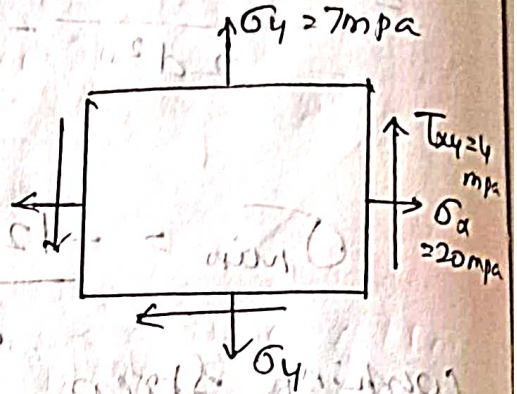 σy = 7mpa
τxy=4
mpa
σx
=20mpa
σy